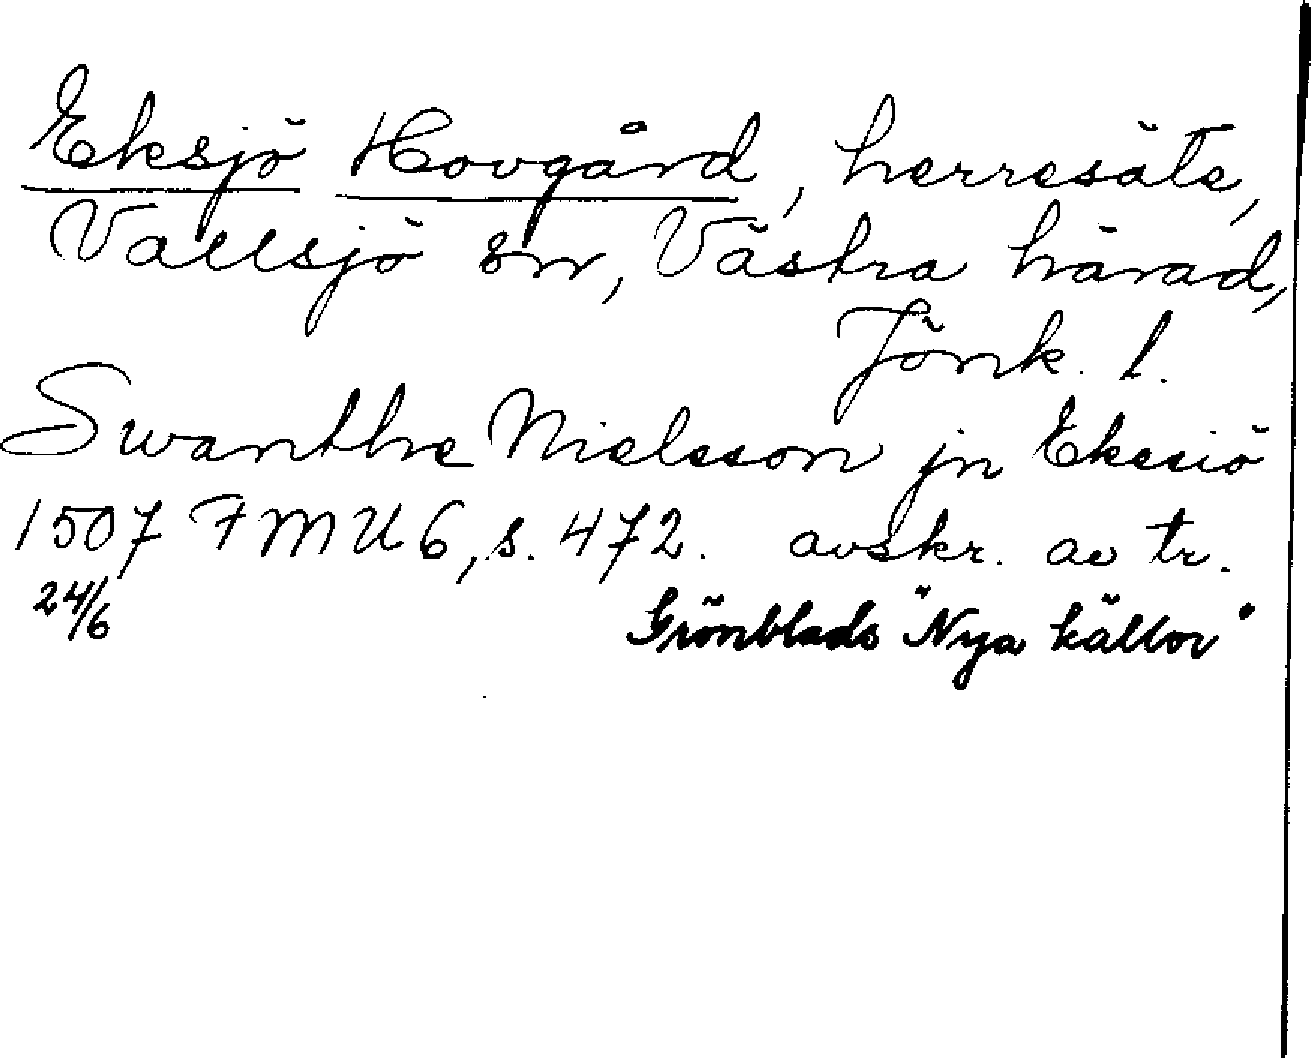 Eksjö Hovgård, herresäte,
Vallsjö sn, Västra härad,
Jönk. l.
Swanthe Nielsson jn Eksiö
1507 FMU 6, s. 472. avskr. av tr.
24/6 Grönblads "Nya källor"